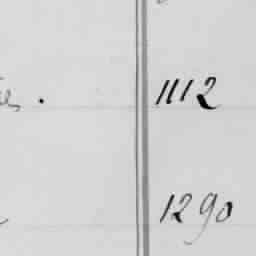 1112
1290